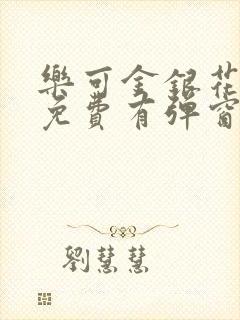 樂可金銀花
免費有彈窗
劉慧慧